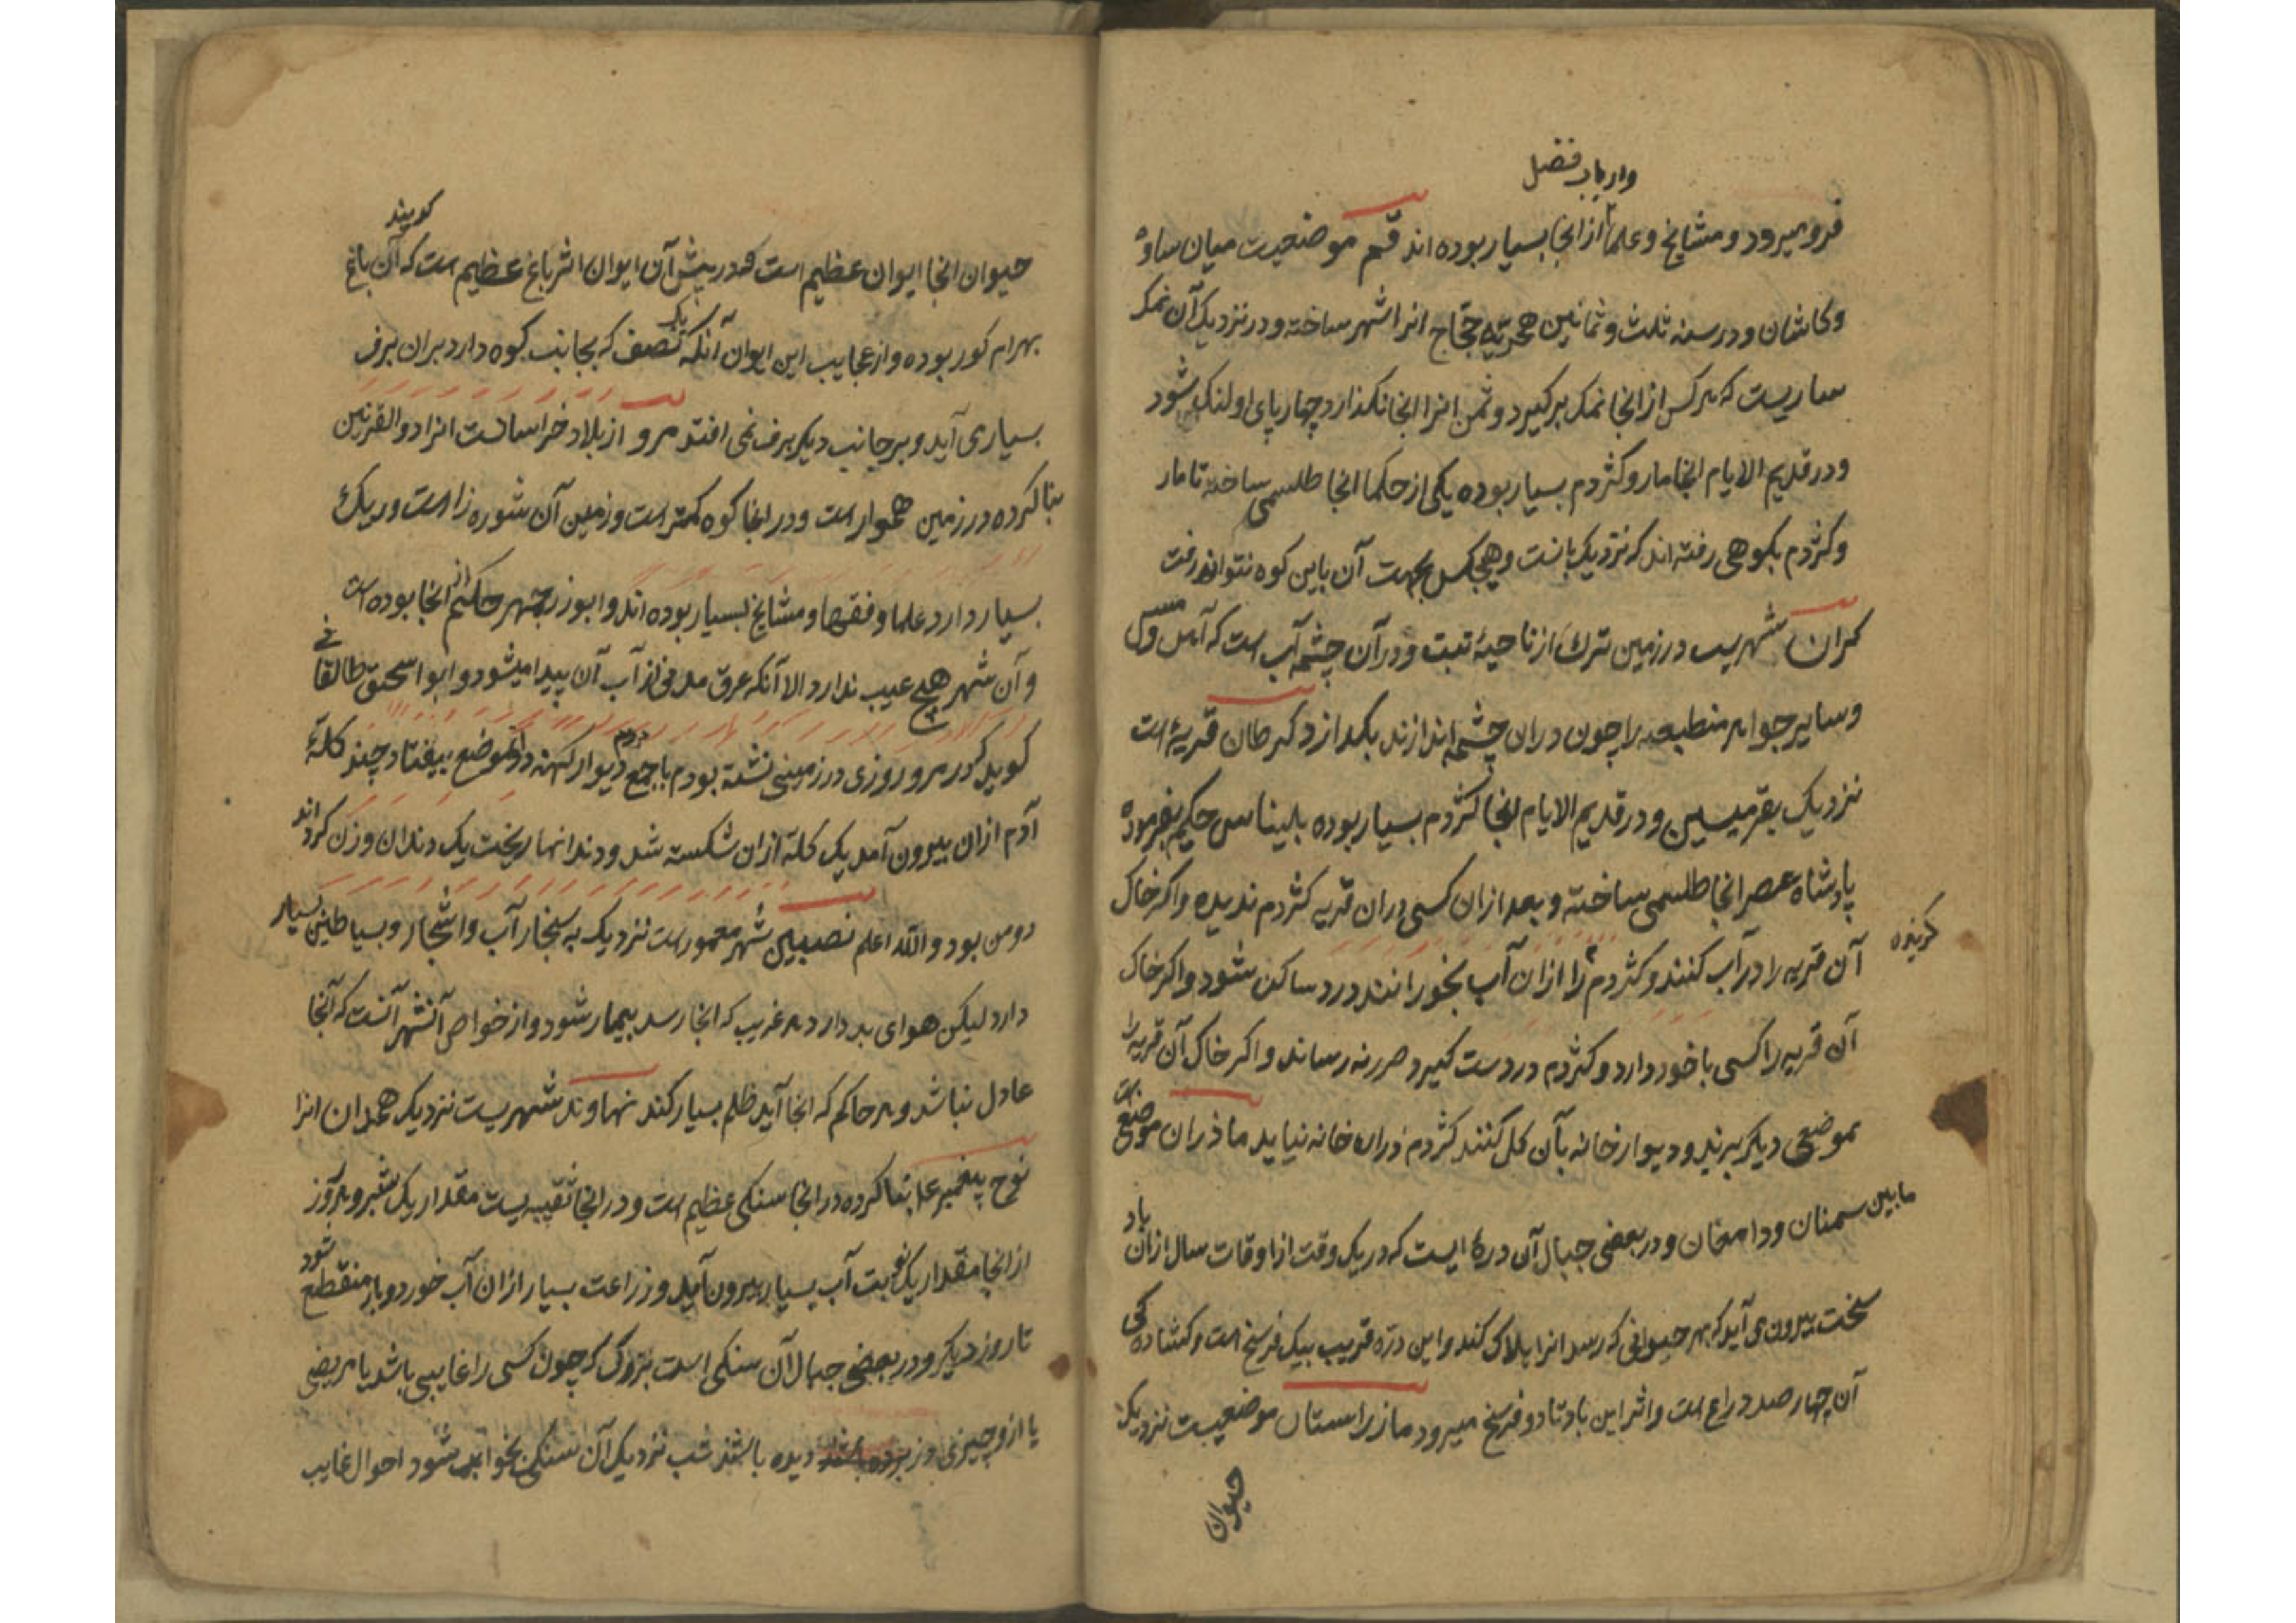 وارباب فضل
فرو میرود و مشایخ و علما از انجا بسیار بوده اند قم موضعیست میان ساوه
و کاشان و در سنه ثلث و ثمانین هجریه حجاج انرا شهر ساخته و در نزدیک آن نمک
ساریست که هر کس از انجا نمک برگیرد و ثمن انرا انجا نکذارد چهارپای او لنک شود
و در قدیم الایام انجا مار و کژدم بسیار بوده یکی از حکما انجا طلسمی ساخته تا مار
و کژدم بکوهی رفته اند که نزدیک بانست و هیچکس بجهت آن باین کوه نتواند رفت
کران شهریست در زمین ترک از ناحیهٔ تبت و در آن چشمه آب است که آهن و مس
و سایر جواهر منطبعه را چون دران چشمه اندازند بکدازد کرطان قریهٔ است
نزدیک بقرمیسین و در قدیم الایام انجا کژدم بسیار بوده بلیناس حکیم بفرموده
پادشاه عصر انجا طلسمی ساخته و بعد ازان کسی دران قریه کژدم ندیده و اکر خاک
آن قریه را در آب کنند و کژدم را ازان آب بخورانند درد ساکن شود و اکر خاک
کزیده
آن قریه را کسی با خود دارد و کژدم در دست کیرد ضرر نه رساند و اکر خاک آن قریه را
بموضعی دیکر برند و دیوار خانه بآن کل کنند کژدم دران خانه نیاید ماذران موضع
مابین سمنان و دامغان و در بعضی جبال آن درهٔ ایست که در یک وقت از اوقات سال ازان باد
سخت بیرون می آید که بهر حیوانی که رسد انرا هلاک کند و این دره قریب بیک فرسخ است و کشادکی
آن چهار صد دراع است و اثر این باد تا دو فرسخ میرود مازراستان موضعیست نزدیک
حیوان
حیوان انجا ایوان عظیم است که در پیش آن ایوان اثر باغ عظیم است که آن باغ کویند
بهرام کور بوده و از عجایب این ایوان آنکه یک نصف که بجانب کوه دارد بران برف
بسیار می آید و بر جانب دیکر برف نمی افتد مرو از بلاد خراسانست انرا ذوالقرنین
بنا کرده در زمین هموار است و در انجا کوه کمتر است و زمین آن شوره زا است و ریک
بسیار دارد علما و فقها و مشایخ بسیار بوده اند و ابوزرجمهر حکیم از انجا بوده است
و آن شهر هیچ عیب ندارد الا آنکه عرق مدنی از آب آن پیدا میشود و ابو اسحق طالقانی
کوید که در مرو روزی در زمینی نشسته بودم با جمع مردم دیوار کهنه دران موضع بیفتاد و چند کلهٔ
آدم ازان بیرون آمد یک کله ازان شکسته شد و دندانها ریخت یک دندان وزن کرده اند
دو من بود و الله اعلم نصیبین شهر معمور است نزدیک به سنجار آب و اشجار و بساطین بسیار
دارد لیکن هوای بد دارد هر غریب که انجا رسد بیمار شود و از خواص آنشهر آنست که آنجا
عادل نباشد و هر حاکم که انجا آید ظلم بسیار کند نهاوند شهریست نزدیک همدان انرا
نوح پیغمبر ع بنا کرده در انجا سنکی عظیم است و در انجا ثقبیه یست مقدار یک شبر و هر روز
از انجا مقدار یک نوبت آب بسیار بیرون آید و زراعت بسیار ازان آب خورد و باز منقطع شود
تا روز دیکر و در بعضی جبال آن سنکی است بزرک که چون کسی را غایبی باشد یا مریضی
یا ازو چیزی دزدیده باشند شب نزدیک آن سنک بخوابد شود احوال غایب